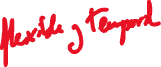 flexible y temporal